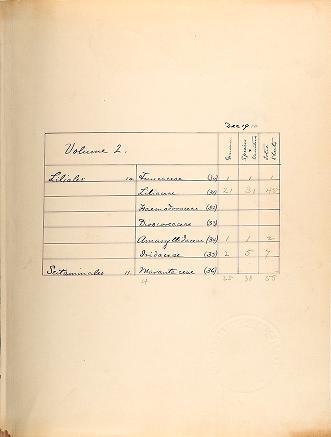 Dec 1910
Volume 2. Genera Species & Varieties Total Sheets
Liliales 10 Juncaceae (30) 1 1 1
Liliaceae (31) 21 31
Haemodoraceae (32)
Dioscoraceae (33)
Amaryllidaceae (34) 1 1 2
Iridaceae (35) 2 5 7
Scitaminales 11 Marantaceae (36)
4 25 38 55